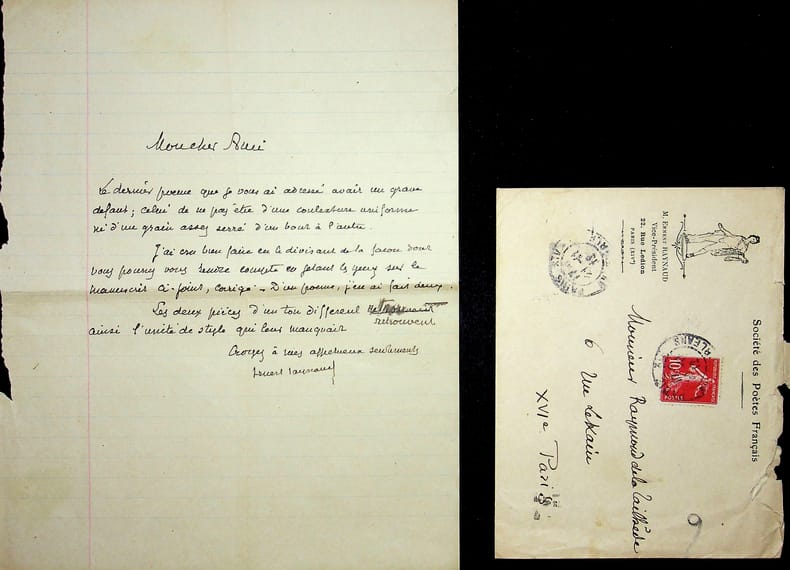 Mon cher Ami
Le dernier poeme que je vous ai adressé avait un grave
defaut; celui de ne pas être d'une contexture uniforme
ni d'un grain assez serré d'un bout à l'autre.
J'ai cru bien faire en le divisant de la facon dont
vous pourrez vous rendre compte en jetant les yeux sur le
manuscrit ci-joint, corrigé. D'un poeme, j'en ai fait deux.
Les deux pièces d'un ton different
retrouvent
ainsi l'unité de style qui leur manquait
Croyez à mes affectueux sentiments
Ernest Raynaud
Société des Poètes Français
M. ERNEST RAYNAUD
Vice-Président
22, Rue Ledion
PARIS (XIVe)
Monsieur Raymond de la Tailhède
6 rue Lekain
XVIe Paris
10
POSTES
PARIS
ORLEANS